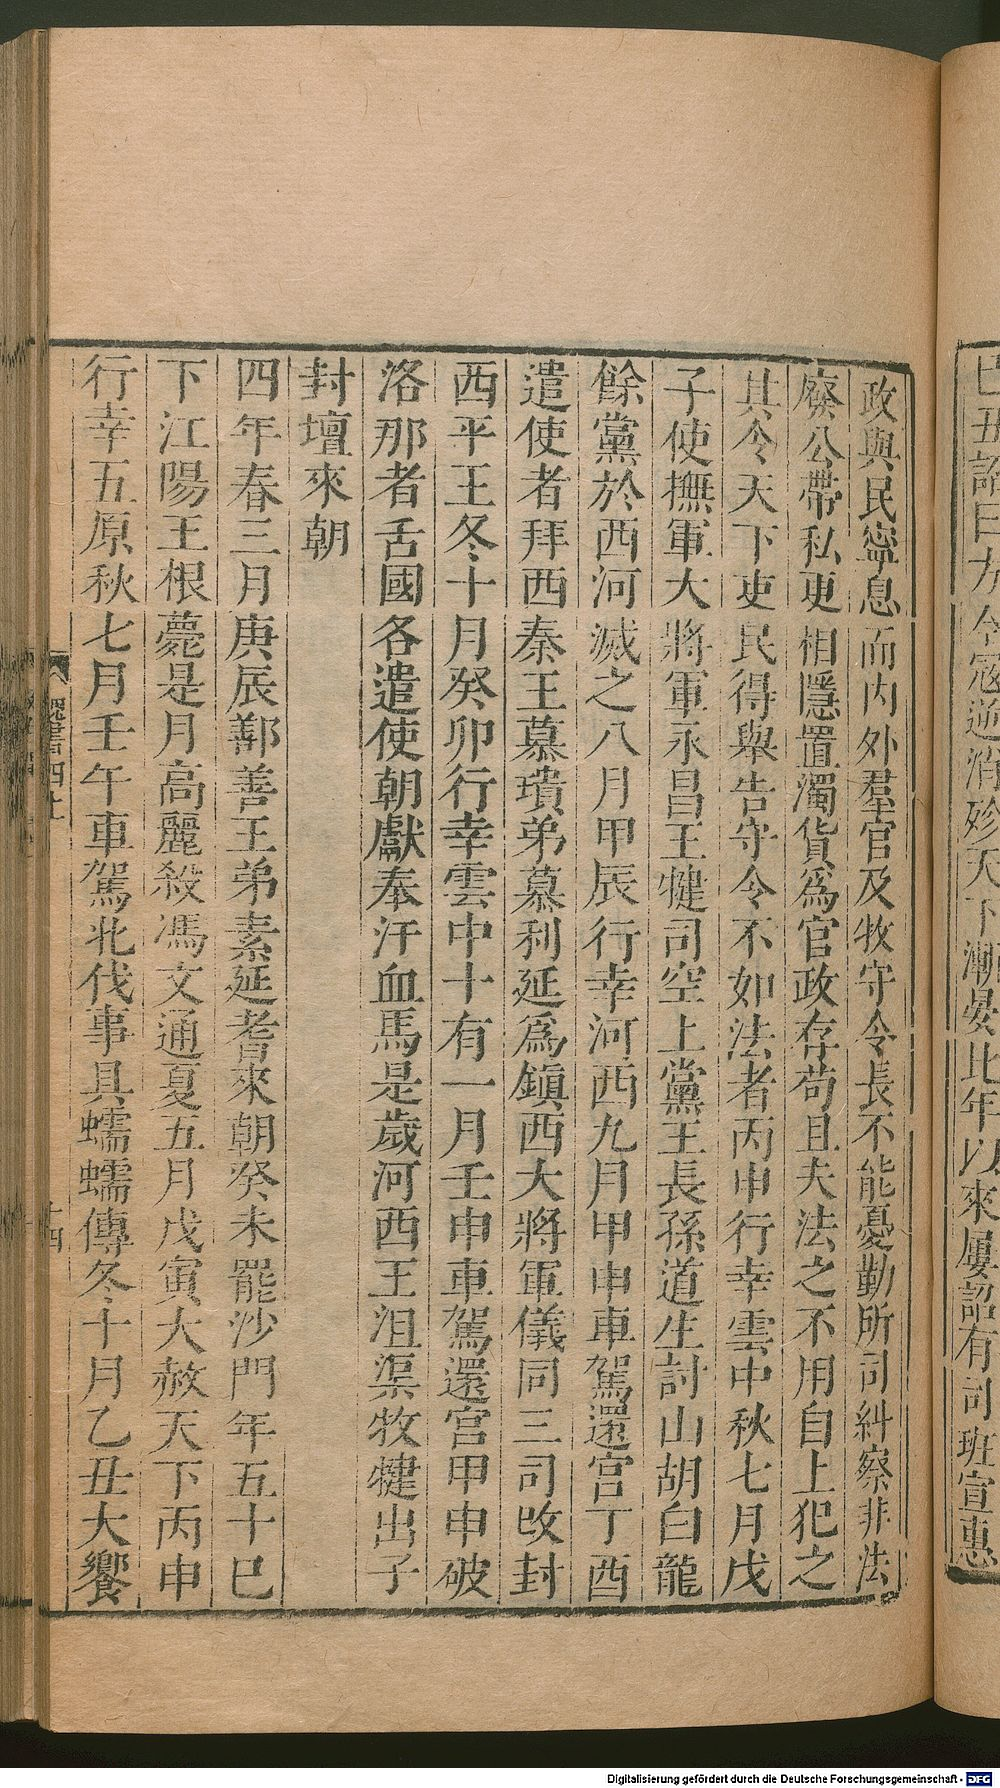 巳丑詔曰方今寇逆消殄天下漸晏比年以來屢詔有司班宣惠
政與民寧息而內外羣官及牧守令長不能憂勤所司糾察非法
廢公帶私更相隱置濁貨爲官政存苟且夫法之不用自上犯之
其令天下吏民得舉告守令不如法者丙申行幸雲中秋七月戊
子使撫軍大將軍永昌王犍司空上黨王長孫道生討山胡白龍
餘黨於西河滅之八月甲辰行幸河西九月甲申車駕還宮丁酉
遣使者拜西秦王慕璝弟慕利延爲鎭西大將軍儀同三司改封
西平王冬十月癸卯行幸雲中十有一月壬申車駕還宮甲申破
洛那者舌國各遣使朝獻奉汗血馬是歲河西王沮渠牧犍出子
封壇來朝
四年春三月庚辰鄯善王弟素延耆來朝癸未罷沙門年五十巳
下江陽王根薨是月高麗殺馮文通夏五月戊寅大赦天下丙申
行幸五原秋七月壬午車駕北伐事具蠕蠕傳冬十月乙丑大饗
魏書四上
十四
Digitalisierung gefördert durch die Deutsche Forschungsgemeinschaft - DFG